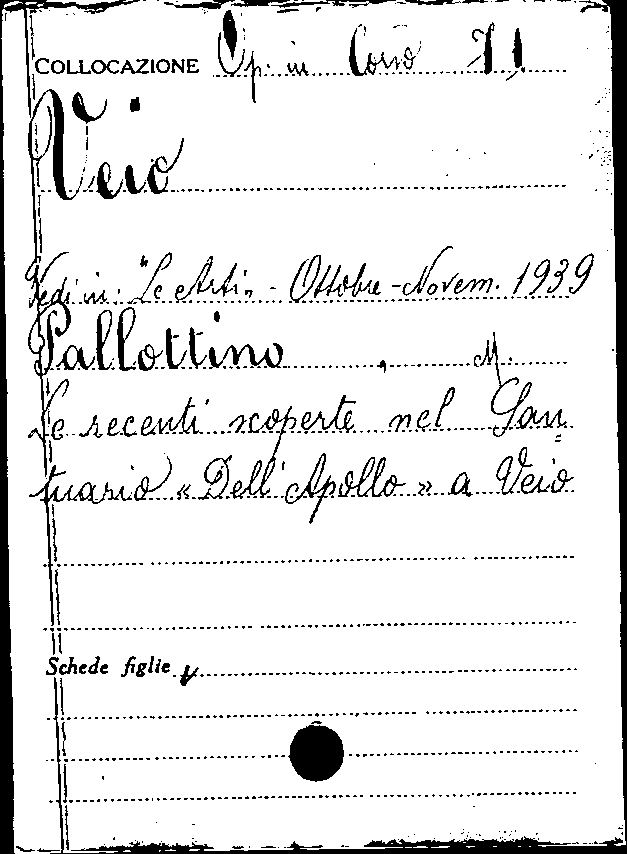 COLLOCAZIONE Op. in Corso 71
Veio
Vedi in: "Le Arti" - Ottobre - Novem. 1939
Pallottino, M.
Le recenti scoperte nel San=
tuario « Dell'Apollo » a Veio
Schede figlie v